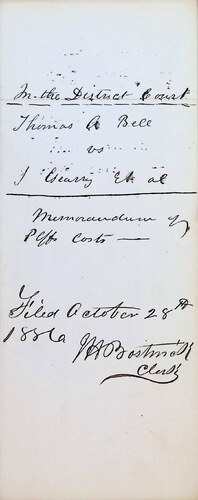 In the District Court
Thomas A Bell
vs
J Gearry Et al
Memorandum of
Plffs Costs —
Filed October 28th
1886
Bostwick
Clerk